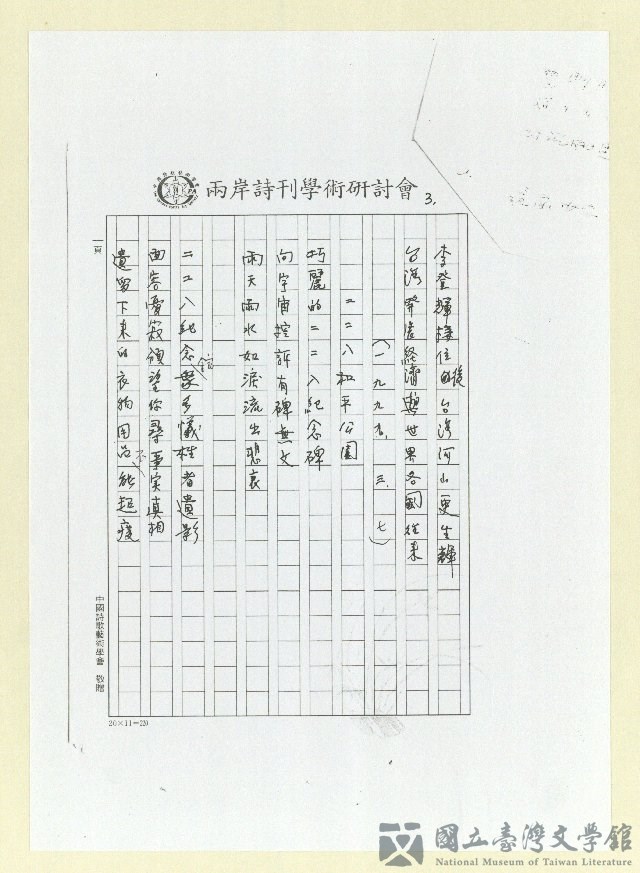 兩岸詩刊學術研討會 3.
李登輝接任後台灣河山更生輝
台灣奔進經濟與世界各國往來
(一九九九.三.七)
二二八和平公園
巧麗的二二八紀念碑
向宇宙控訴有碑無文
雨天雨水如淚流出悲哀
二二八紀念館多犧牲者遺影
面容憂寂願望你尋事實真相
遺留下來的衣物用品不能起復
一頁
中國詩歌藝術學會 敬贈
20×11=220
國立臺灣文學館
National Museum of Taiwan Literature